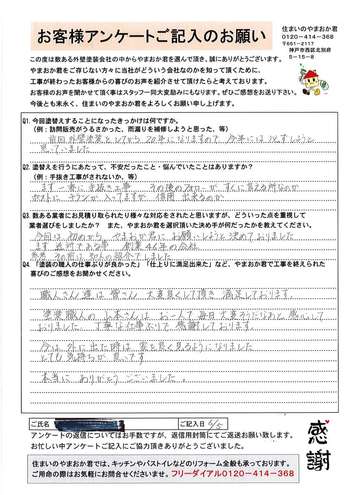 お客様アンケートご記入のお願い
住まいのやまおか君
0120-414-368
〒651-2117
神戸市西区北別府
5-15-8
この度は数ある外壁塗装会社の中からやまおか君を選んで頂き、誠にありがとうございます。
やまおか君をご存じない方々に当社がどういう会社なのかを知って頂くために、
工事が終わったお客様からの喜びのお声を紹介させて頂けたらと考えております。
お客様のお声を聞かせて頂く事はスタッフ一同大変励みにもなります。ぜひご感想をお送り下さい。
今後とも末永く、住まいのやまおか君をよろしくお願い申し上げます。
Q1. 今回塗替えすることになったきっかけは何ですか。
(例：訪問販売がうるさかった、雨漏りを補修しようと思った、等)
前回外壁塗装をしてから20年になりますので 今年には決まずしようと
思っていました
Q2. 塗替えを行うにあたって、不安だったこと・悩んでいたことはありますか？
(例：手抜き工事がこれないか、等)
まず 一番に手抜き工事 その後のフォローが すぐに言える所なのか
ポストに チラシが 入ってますが 信用 出来るのか
Q3. 数ある業者にお見積り取られたり様々な対応をされたと思いますが、どういった点を重視して
業者選びをしましたか？ また、やまおか君を選択頂いた決め手が何だったかを教えてください。
今回は 初めから やまおか君に お願いしようと 決めておりました
まず 近所である事 創業 41年の会社
Q4.「塗装の職人の仕事ぶりが良かった」「仕上りに満足出来た」など、やまおか君で工事を終えられた
喜びのご感想をお聞かせください。
職人さん達は 皆さん 大変良くして頂き 満足しております。
塗装職人の 山本さんは お一人で 毎日 大変そうだなあと 感心して
おりました。 丁寧な仕事ぶりで 感謝しております。
今は 外に出た時は 家を良く見るようにしました
とても 気持ちが 良いです
本当に ありがとう ございました。
ご氏名
ご記入日 6/5
アンケートの返信についてはお手数ですが、返信用封筒にてご返送お願い致します。
お忙しい中アンケートにご協力頂きありがとうございました。
感謝
住まいのやまおか君では、キッチンやバストイレなどのリフォーム全般も承っております。
ご用命の際はお気軽にお問合せください。フリーダイアル0120-414-368